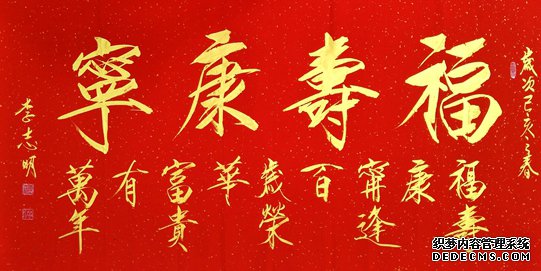 歲次己亥之春
福壽康寧
福壽康甯逢百歲榮華富貴有萬年
李志明
织梦内容管理系统
DEDECMS.COM